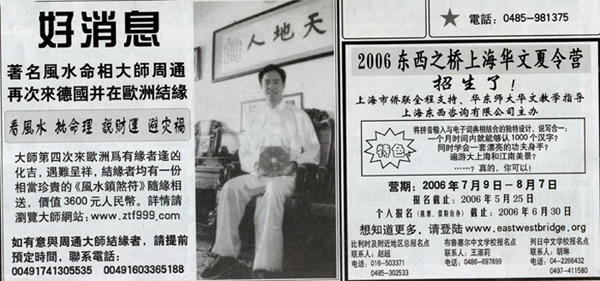 好消息
著名風水命相大師周通
再次來德國并在歐洲結緣
看風水 批命理 説財運 避灾禍
大師第四次來歐洲爲有緣者逢凶
化吉,遇難呈祥,結緣者均有一份
相當珍貴的《風水鎮煞符》隨緣相
送,價值3600元人民幣。詳情請
瀏覽大師網站:www.ztf999.com
如有意與周通大師結緣者,請提前
預定時間,聯系電話:
00491741305535 00491603365188
人地天
★ 電話:0485-981375
2006 东西之桥上海华文夏令营
招生了!
上海市侨联全程支持、华东师大华文教学指导
上海东西咨询有限公司主办
特色
将拼音输入与电子词典相结合的独特设计,说写合一,
一个月时间内就能够认1000个汉字?
同时学会一套漂亮的功夫身手?
遍游大上海和江南美景?
……?真的,你可以!
营期:2006年7月9日-8月7日
报名截止:2006年5月25日
个人报名(机票、保险自办) 截止:2006年6月30日
想知道更多,请登陆 www.eastwestbridge.org
比利时及附近地区总报名点
联系人:赵超
电话:016-503371
0485-302533
布鲁塞尔中文学校报名点
联系人:王淑莉
电话:0486-697899
列日中文学校报名点
联系人:胡琳
电话:04-2266432
0497-411580